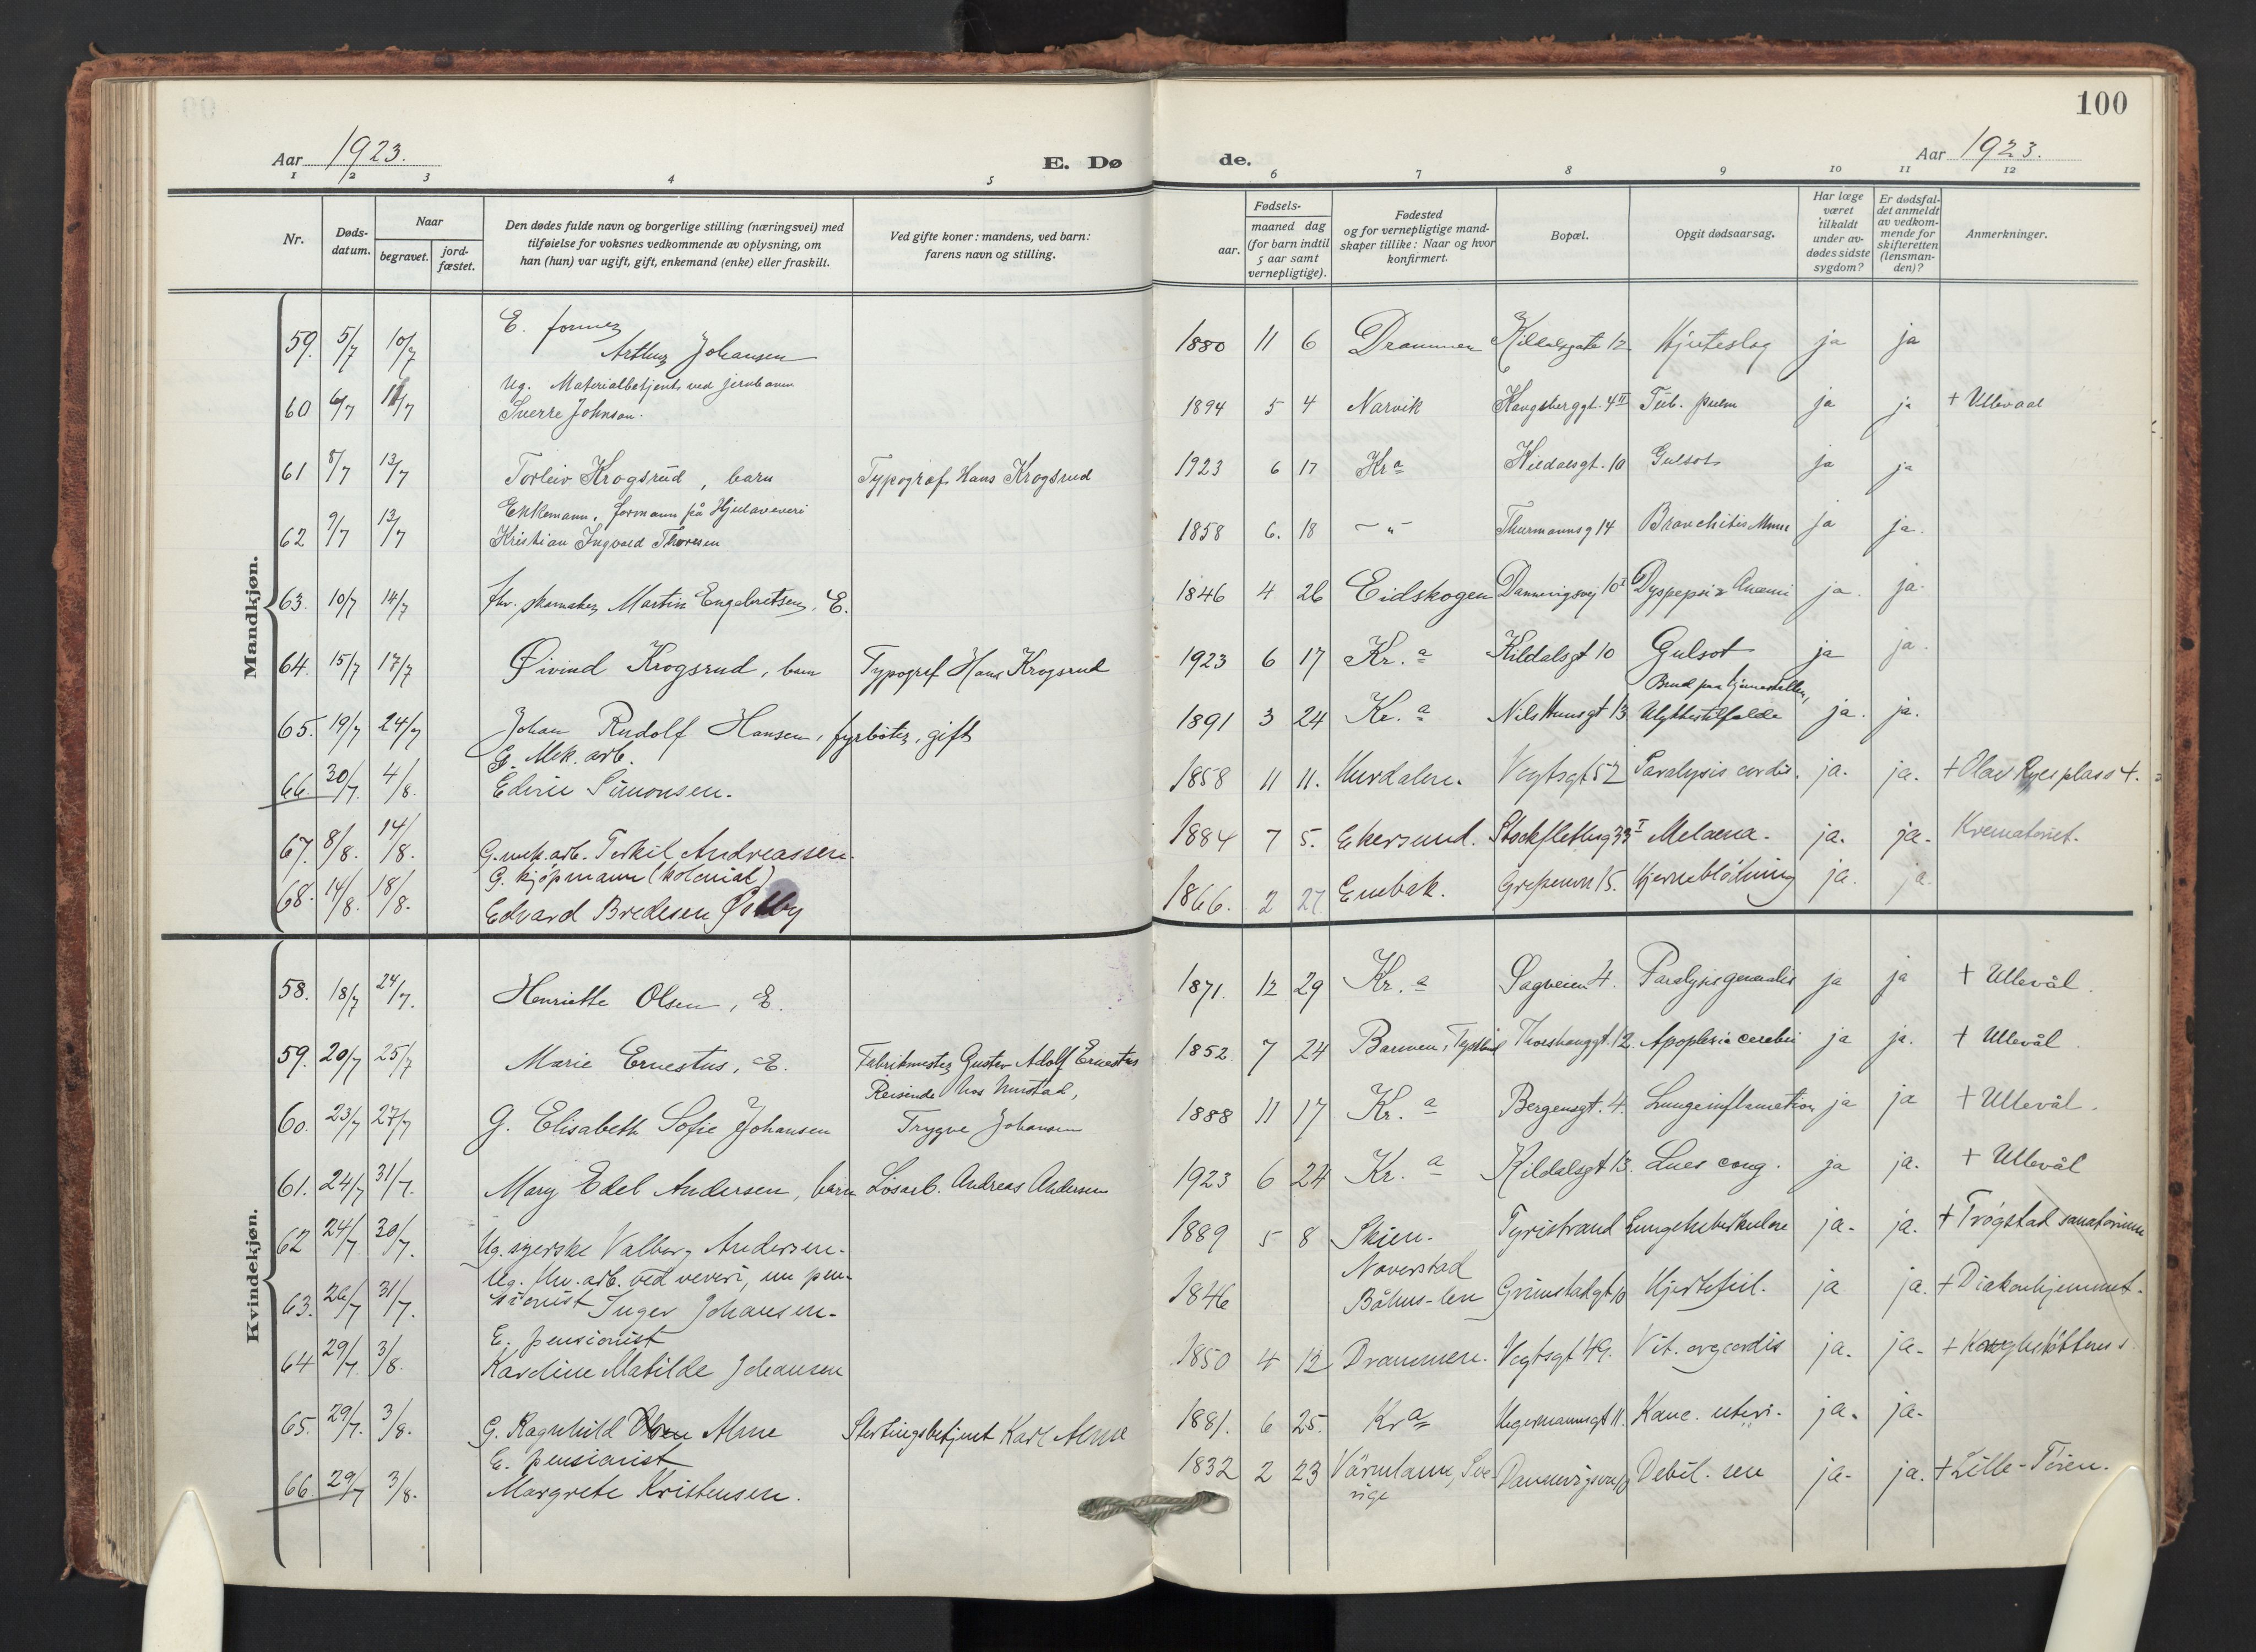 100
Aar 1923.
E. Dø
de.
Aar 1923.
1 2 3 4 5 6 7 8 9 10 11 12
Nr.
Døds-
datum.
Naar
begravet.
jord-
fæstet.
Den dødes fulde navn og borgerlige stilling (næringsvei) med
tilføielse for voksnes vedkommende av oplysning, om
han (hun) var ugift, gift, enkemand (enke) eller fraskilt.
Ved gifte koner: mandens, ved barn:
farens navn og stilling.
Fødsels-
aar.
maaned dag
(for barn indtil
5 aar samt
vernepligtige).
Fødested
og for vernepligtige mand-
skaper tillike: Naar og hvor
konfirmert.
Bopæl.
Opgit dødsaarsag.
Har læge
været
tilkaldt
under av-
dødes sidste
sygdom?
Er dødsfal-
det anmeldt
av vedkom-
mende for
skifteretten
(lensman-
den)?
Anmerkninger.
Mandkjøn.
E.
59. 5/7 10/7 Arthur Johansen 1880 11 6 Drammen Kildalsgate 12 Hjerteslag ja ja
Ug. Materialbetjent ved jernbanen
60 6/7 11/7 Sverre Johnson. 1894 5 4 Narvik Kongsberggt. 4 II Tub. pulm ja ja + Ullevaal
61 8/7 13/7 Torleiv Krogsrud, barn Typograf Hans Krogsrud 1923 6 17 Kra Kildalsgt. 10 Gulsot ja ja
Enkemann, formann på Hjulaveveri
62 9/7 13/7 Kristian Ingvald Thoresen 1858 6. 18 - " - Thurmannsg 14 Bronchitis ja ja.
63. 10/7 14/7 fhv. skomaker Martin Engebretsen, E. 1846 4 26 Eidskogen Dannevigsvej 10 I Dyspepsia Anæmi ja. ja.
64. 15/7 17/7 Øivind Krogsrud, barn Typograf Hans Krogsrud 1923 6 17 Kr.a Kildalsgt 10 Gulsot ja ja.
Brud paa hjerneskallen,
65. 19/7 24/7 Johan Rudolf Hansen, fyrbøter, gift 1891 3 24 Kr.a Nils Huusgt 13 Ulykkestilfælde ja. ja.
G. Mek. arb.
66. 30/7. 4/8. Edvin Simonsen. 1858 11 11. Hurdalen. Vogtsgt 52 Paralysis cordis. ja. ja. + Olav Ryes plass 4.
67. 8/8. 14/8. G. mek. arb. Terkil Andreassen. 1884 7 5. Ekersund. Stockflethsg 33 I Melaena. ja. ja. Krematoriet.
G. kjøpmann (kolonial)
68. 14/8. 18/8. Edvard Bredesen Østby 1866. 2 27 Enebak. Grefsenvn 15. Hjerneblødning ja. ja.
Kvindekjøn.
58. 18/7 24/7. Henriette Olsen, E. 1871. 12 29 Kr.a Sagveien 4. Paralysis generalis ja ja + Ullevål.
59. 20/7 25/7 Marie Ernestus, E. Fabrikmester Gustav Adolf Ernestus 1852. 7 24 Barmen, Tyskland Thorshauggt. 12. Apoplexia cerebri ja ja. + Ullevål.
Reisende hos
60. 23/7 27/7 G. Elisabeth Sofie Johansen Trygve Johansen 1888 11 17 Kr.a Bergensgt. 4. Lungeinflamation ja ja + Ullevål.
61. 24/7 31/7. Mary Edel Andersen, barn Løsarb. Andreas Andersen 1923 6 24 Kr.a Kildalsgt 13. Lues cong. ja ja. + Ullevål
62 24/7 30/7. Ug. syerske Valborg Andersen. 1889 5 8 Skien. Tyristrand Lungetuberkulose ja. ja. + Trøgstad sanatorium
Ug. fhv. arb. ved veveri, nu pen-
63. 26/7 31/7. sionist Inger Johansen. 1846 Naverstad Båhus-len Grimstadgt 10 Hjertefeil. ja ja. + Diakonhjemmet.
E. pensionist
64 29/7. 3/8. Karoline Matilde Johansen 1850 4 12 Drammen. Vogtsgt 49. Vit. org cordis ja. ja.
65. 29/7. 3/8. G. Ragnhild Alme Stortingsbetjent Karl Alme 1881. 6 25. Kra Hegermannsgt 11. Kanc. uteri. ja. ja.
E. pensionist
66. 29/7 3/8. Margrete Kristensen. 1832 2 23 Värmland, Sve-
rige Dannevigsvn 10 Debil. sen ja. ja. + Lille-Tøien.